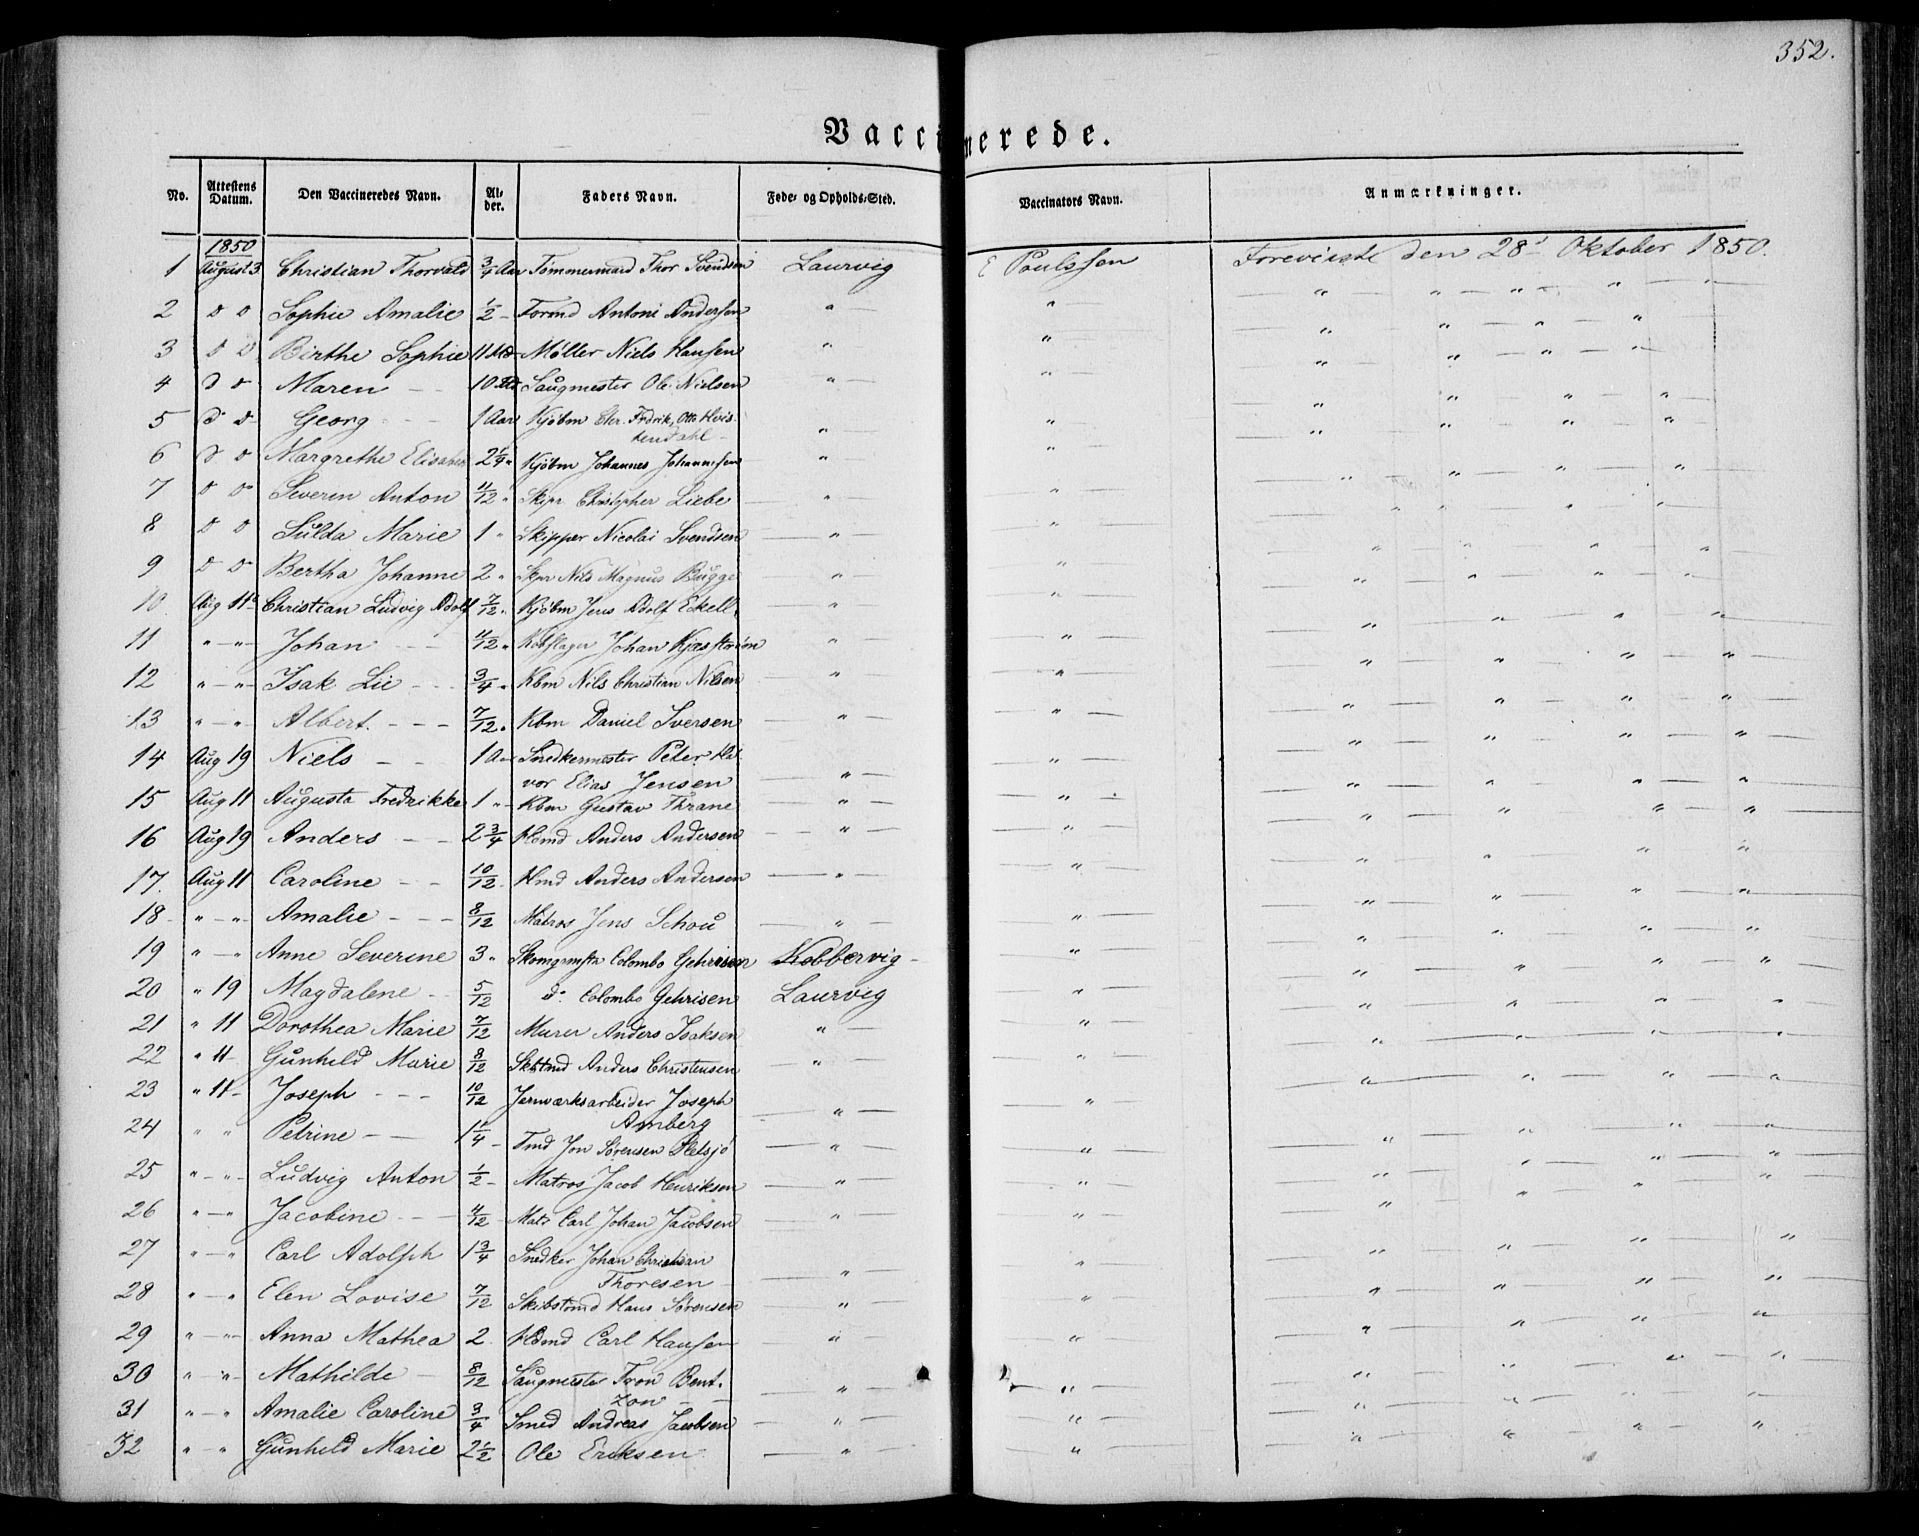 352.
Vaccinerede.
No. Attestens Datum. Den Vaccineredes Navn. Alder. Faders Navn. Føde- og Opholds-Sted. Vaccinators Navn. Anmærkninger.
1850
1 August 3 Christian Thorvald 3/4 Aar Tømmermand Thor Svendsen Laurvig E Poulssen Foreviiste den 28d Oktober 1850.
2 d d Sophie Amalie 1/2 - Formd Antoni Andersen " — " " — " — " — " — "
3 d d Birthe Sophie 11 Md Møller Niels Hansen " — " " — " — " — "
4 d d Maren — 10 Md Saugmester Ole Nielsen " — " " — " — " — "
5 d d Georg — 1 Aar Kjøbm Chr. Fredrik Otto Hvis-
tendahl — " — " " — " — " — "
6 d d Margrethe Elisabeth 2 1/4 " Kjøbm Johannes Johannesen " — " " — " — " — "
7 d d Severin Anton 11/12 " Skipr Christopher Liebe " — " " — " — " — "
8 d d Hulda Marie 1 " Skipper Nicolai Svendsen " — " " — " — " — "
9 d d Bertha Johanne 2 " Skpr Nils Magnus Bugge " — " " — " — " — "
10 Aug 11te Christian Ludvig Adolf 7/12 " Kjøbm Jens Adolf Eckell " — " " — " — " — "
11 " — " — Johan — 11/12 " Kobslager Johan " — " " — " — " — "
12 " — " — Isak Lie — 3/4 " Kbm Nils Christian Nilsen " — " " — " — " — "
13 " — " — Albert. — 7/12 " Kbm Daniel Iversen " — " " — " — " — "
14 Aug 19 Niels — 1 Aar Snedkermester Peter Hal-
vor Elias Jensen " — " " — " — " — "
15 Aug 11 Augusta Fredrikke 1 " Kbm Gustav Thrane " — " " — " — " — "
16 Aug 19 Anders — 2 3/4 Hbmd Anders Andersen " — " " — " — " — "
17. Aug 11 Caroline — 10/12 Hmd Anders Andersen " — " " — " — " — "
18 " — " — Amalie — 8/12 Matros Jens Schou " — " " — " — " — "
19 " — " — Anne Severine 3 " Skomgrmstr Colombo Gehrisen Kobbervig — " " — " — " — "
20 " 19 Magdalene — 5/12 d: Colombo Gehrisen Laurvig " " — " — " — "
21 " 11 Dorothea Marie 7/12 Murer Anders Isaksen " — " " — " — " — "
22 " 11 — Gunhild Marie 8/12 Skbtmd Anders Christensen " — " " — " — " — "
23 " 11 — Joseph — 10/12 Jernværksarbeider Joseph
Amberg " — " " — " — " — "
24 " " Petrine — 1 1/4 Tmd Jon Sørensen Sletsjø " — " " — " — " — "
25 " — " — Ludvig Anton 1/2 — Matros Jacob Henriksen " — " " — " — " — "
26 " — " Jacobine — 4/12 Mats Carl Johan Jacobsen " — " " — " — " — "
27 " — " Carl Adolph 1 3/4 Snedker Johan Christian
Thoresen " — " " — " — " — "
28 " — " Elen Lovise 7/12 Skibstmd Hans Sørensen " — " " — " — " — "
29 " — " — Anna Mathea 2 Hbmd Carl Hansen " — " " — " — " — "
30 " — " — Mathilde — 8/12 Saugmester Tron Bent-
zon — " — " " — " — " — "
31 " — " Amalie Caroline 3/4 Smed Andreas Jacobsen " — " " — " — " — "
32 " — " Gunhild Marie 2 1/2 Ole Eriksen " — " " — " — " — "